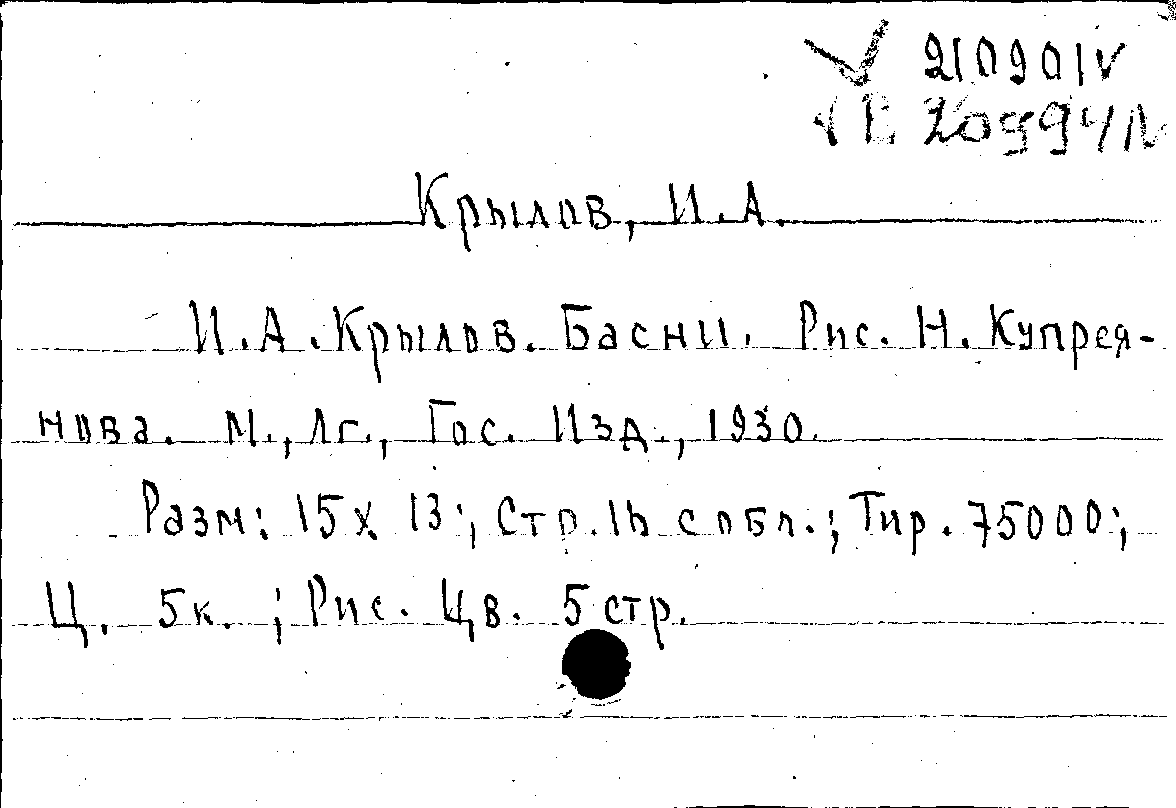 210901V
Крылов, И.А.
И.А.Крылов. Басни. Рис. Н. Купрея-
нова. М., Лг., Гос. Изд., 1930.
Разм: 15х 13; Стр.16 с обл.; Тир. 75000;
Ц. 5к. ; Рис. Цв. 5 стр.